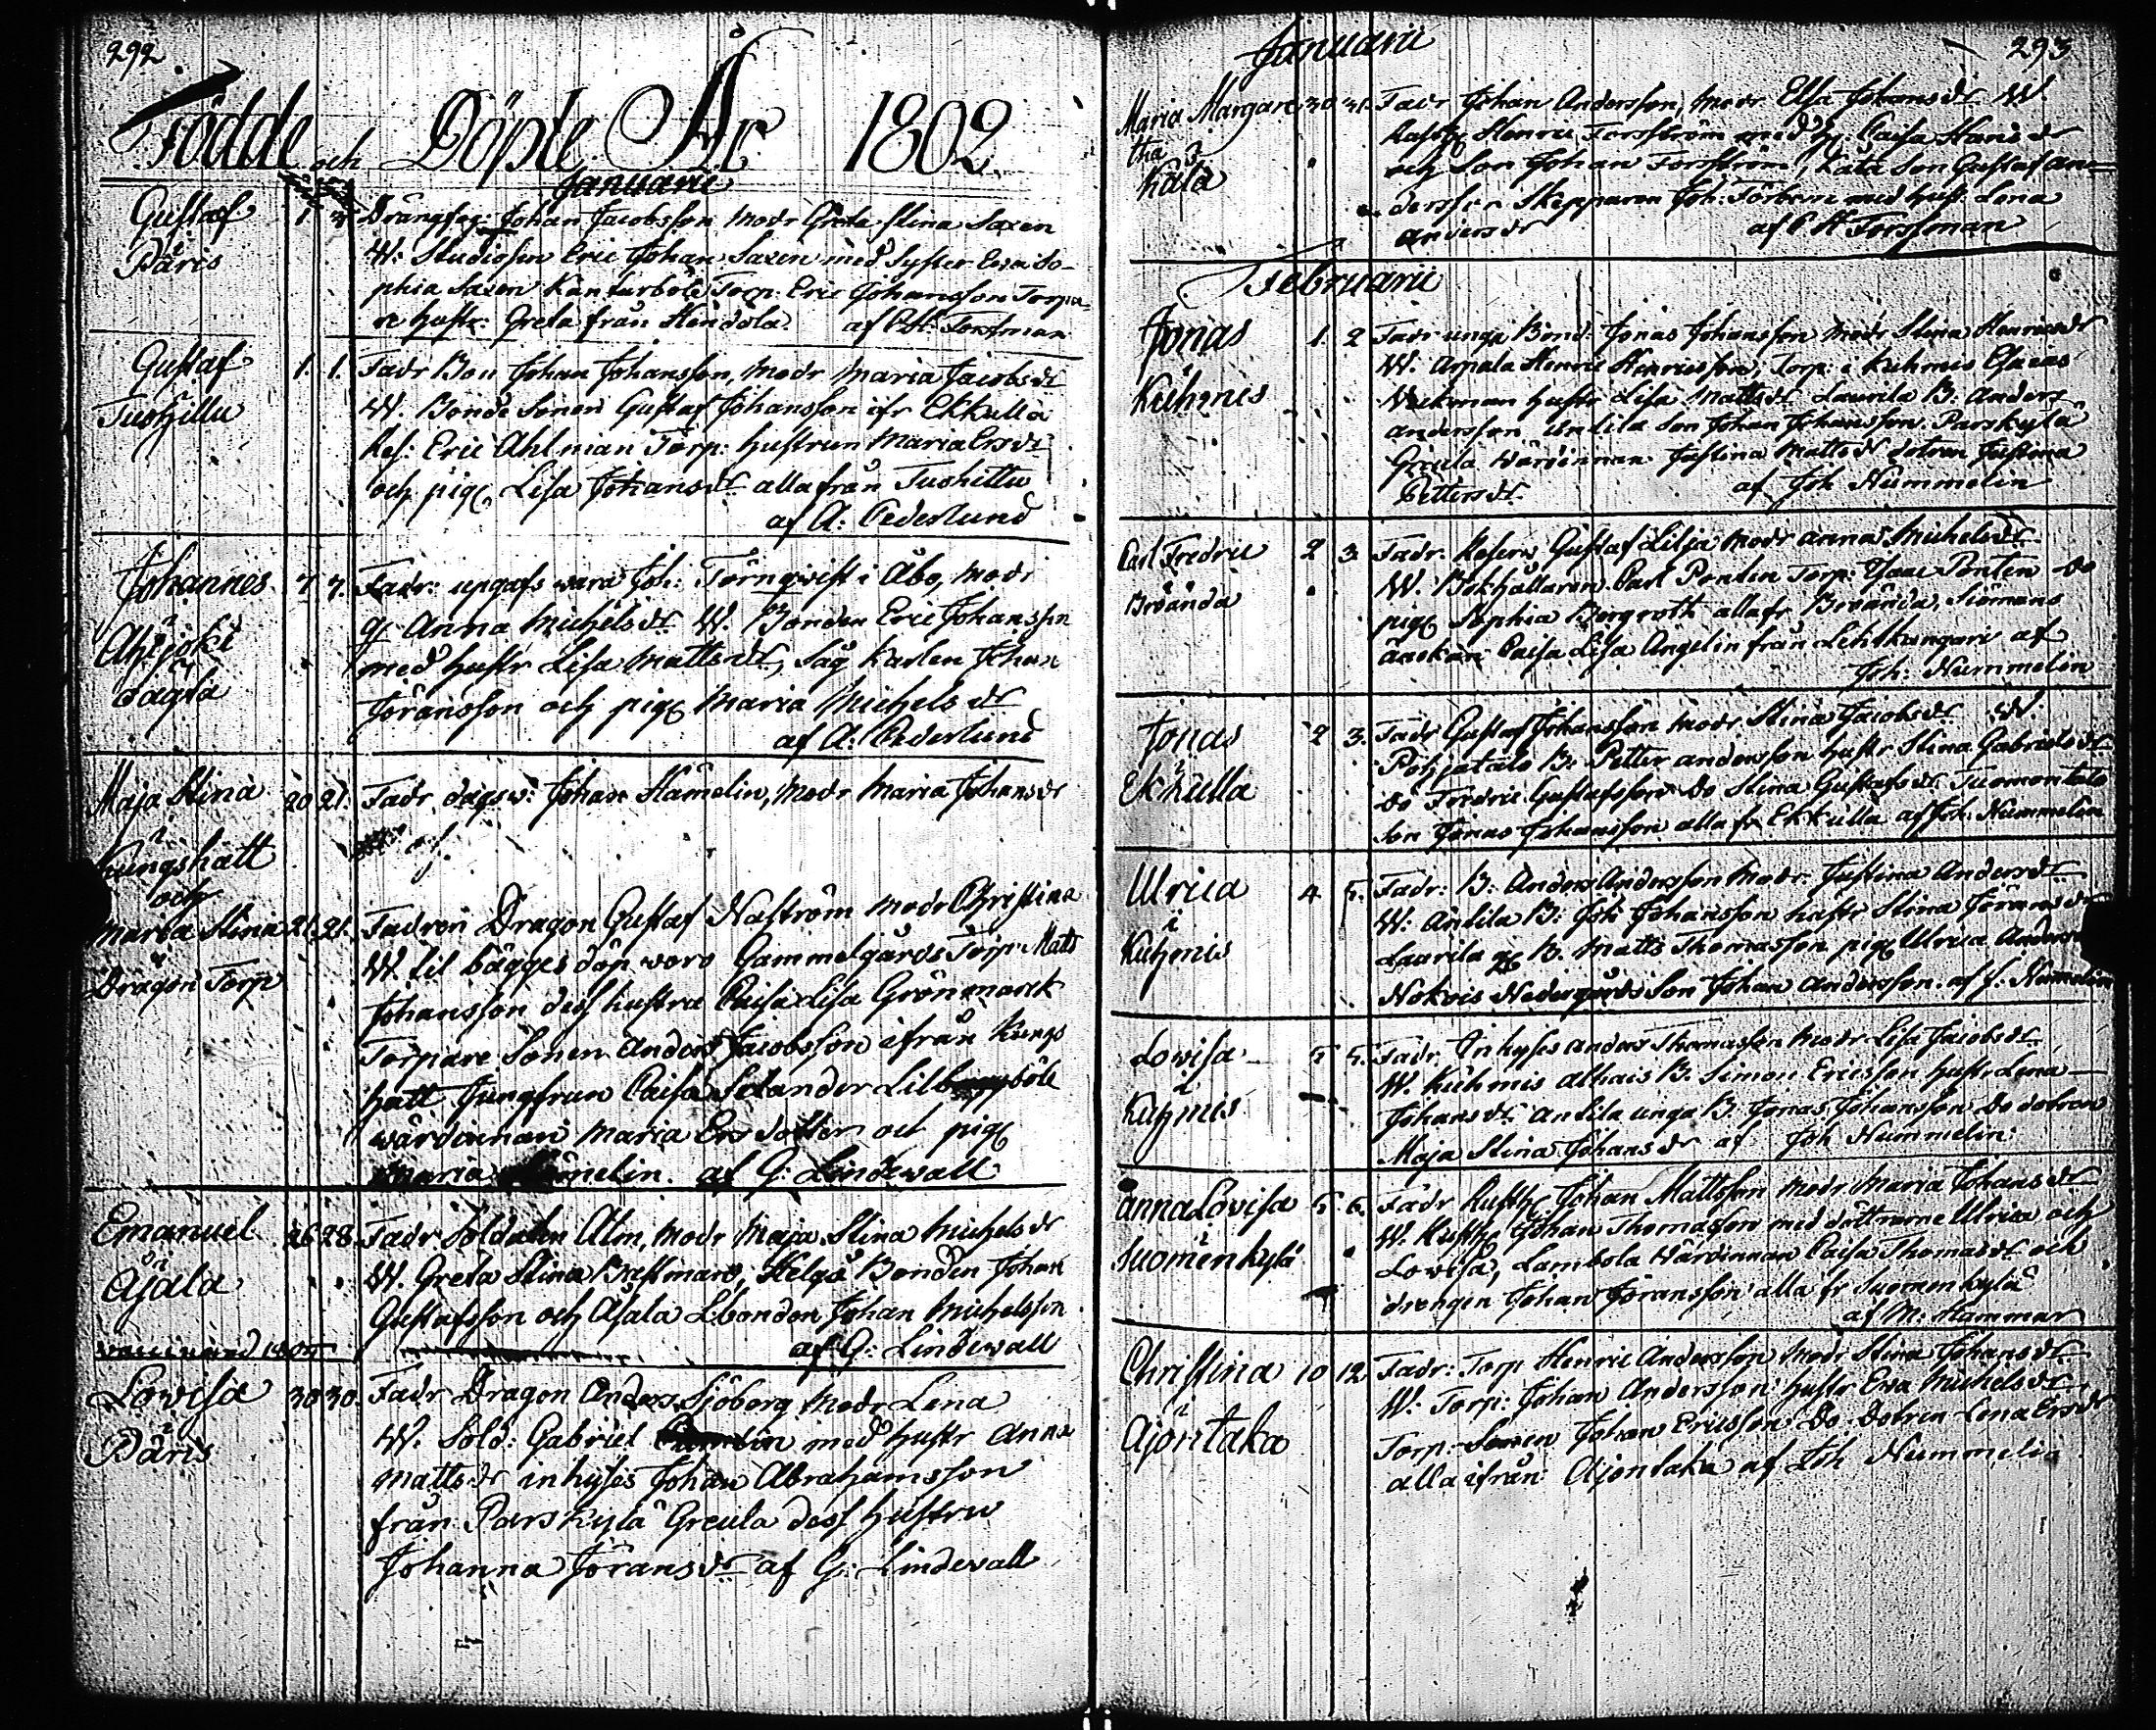 292
Födde och Döpte År 1802.
Januarii
Gustaf 1. 3. Drängfog: Johan Jacobsson Modr Greta Stina Saxen
Päris W: Studiosen Eric Johan Saxen med Syster Ewa So-
phia Saxen Kankarböle Torp: Eric Johansson Torpa-
re hustr: Greta från Hendola. af C. H. Forssman
Gustaf 1. 1. Fadr Bon Johan Johansson, Modr Maria Jacobsdr
Tuohittu W. Bonde Sonen Gustaf Johansson ifr Ekkulla
Res: Eric Ahlman Torp: hustrun Maria Ersdr
och pig Lisa Johansdr alla från Tuohittu
af A: Cederlund
Johannes 7 7. Fadr: upgafs wara Joh: Törnqwist i Åbo, Modr
i Q Anna Michelsdr W. Bonden Eric Johansson
Ahijoki med hustr Lisa Mattsdr, Såg Karlen Johan
Sågla Joransson och pig Maria Michelsdr
af A: Cederlund
Maja Stina 20 21. Fadr dagsw: Johan Hämelin, Modr Maria Johansdr
i
Kungshatt
och
Maria Stina 21. 21. Fadren Dragon Gustaf Naström Modr Christina
i W. til bägges döp woro Gammelgårds Torp: Matts
Dragon Torp Johansson dess hustru Caisa Lisa Grönmarck
Torpare Sonen Anders Jacobsson ifrån Kungs
hatt Jungfrun Caisa Selander Lillböle
wärdinnan Maria Ersdotter och pig
Maria Hämelin. af G: Lindewall
Emanuel 26 28. Fadr Soldaten Alm, Modr Maja Stina Michelsdr
i W. Greta Stina Bastman, Helgå Bonden Johan
Åjala Gustafsson och Åjala Lbonden Johan Michelsson
vaccinerad 1805 af G: Lindewall
Lowisa 30 30. Fadr Dragon Anders Sjöberg Modr Lena
i W. Sold: Gabriel med hustr Anna
Päris Mattsdr inhyses Johan Abrahamsson
från Parskylä Greula dess hustru
Johanna Joransdr af G: Lindewall
Januarii 293
Maria Margare 30 31. Fadr Johan Andersson, Modr Elsa Johansdr W.
tha Henric Forsström med h: Caisa Hansdr
i och Son Johan Forsström, Kåla Son Gustaf An-
Kåla dersson Skepparen Joh: Törbern med hust: Lena
Andersdr af C H Forssman
Februarii
Jonas 1. 2 Fadr unga Bond: Jonas Johansson Modr Stina Henricsdr
i W. Arpala Henric Henricsson, Torp: i Kuhmis Esaias
Kuhmis Wickman hustr Lisa Mattsdr Laurila B: Anders
Andersson Antila Son Johan Johansson Parskylä
Greula wärdinnan Justina Mattsdr dotren Justina
Pettersdr af Joh Nummelin
Carl Fredric 2 3 Fadr: Reserw Gustaf Lilja Modr Anna Michelsdr
i W. Bokhållaren Carl Ponten Torp: Isaac Ponten Do
Broända pig Sophia Bergroth alla fr Broända, Siömans
änckan Caisa Lisa Angelin från Lehtkangari af
Joh: Nummelin
Jonas 2 3. Fadr Gustaf Johansson Modr. Stina Jacobsdr W.
i Pohjatalo B: Petter Andersson hustr Stina Gabrielsdr
Ekkulla Do Fredric Gustafsson Do Stina Gustafsdr Tuomontalo
Son Jonas Johansson alla fr Ekkulla af Joh: Nummelin
Ulrica 4 5. Fadr: B: Anders Andersson Modr. Justina Andersdr
i W: Antila B: Joh Johansson hustr Stina Joransdr
Kuhmis Laurila B. Matts Thomasson pig Ulrica Andersdr
Nokois Nedergårds Son Johan Andersson. af J: Nummelin
Lowisa 5 5. Fadr. Inhyses Anders Thomasson Modr Lisa Jacobsdr
i W. Kuhmis Alhais B. Simon Ericsson hustr Lena
Kuhmis Johansdr Antila unga B. Jonas Johansson Do dotren
Maja Stina Johansdr af Joh Nummelin
Anna Lowisa 5. 6. Fadr Rusth Johan Mattsson Modr. Maria Johansdr
i W. Rusth Johan Thomasson med döttrarne Ulrica och
Suomenkylä Lowisa, Lambola wärdinnan Caisa Thomasdr och
drengen Johan Joransson alla fr Suomenkylä
af M: Hammar
Christina 10 12 Fadr: Torp Henric Andersson Modr Stina Johansdr
i W: Torp: Johan Andersson hustr Ewa Michelsdr
Ajontaka Torp: Sonen Johan Ericsson Do Dotren Lena Ersdr
alla ifrån Ajontaka af Joh Nummelin